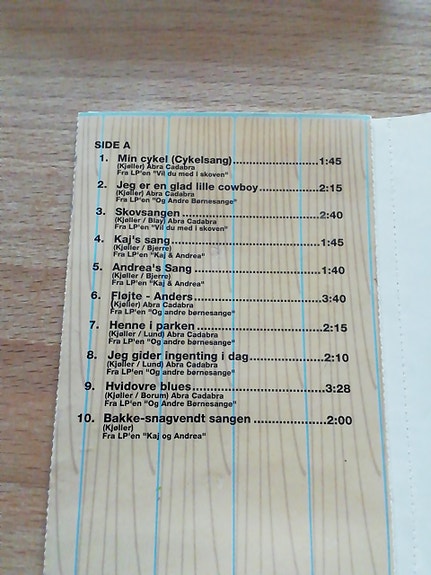 SIDE A
1. Min cykel (Cykelsang)..........................1:45
(Kjøller) Abra Cadabra
Fra LP'en "Vil du med i skoven"
2. Jeg er en glad lille cowboy..................2:15
(Kjøller) Abra Cadabra
Fra LP'en "Og Andre Børnesange"
3. Skovsangen..........................................2:40
(Kjøller / Blay) Abra Cadabra
Fra LP'en "Vil du med i skoven"
4. Kaj's sang.............................................1:45
(Kjøller / Bjerre)
Fra LP'en "Kaj & Andrea"
5. Andrea's Sang ......................................1:40
(Kjøller / Bjerre)
Fra LP'en "Kaj & Andrea"
6. Fløjte - Anders......................................3:40
(Kjøller) Abra Cadabra
Fra LP'en "Og andre børnesange"
7. Henne i parken .....................................2:15
(Kjøller / Lund) Abra Cadabra
Fra LP'en "Og andre børnesange"
8. Jeg gider ingenting i dag......................2:10
(Kjøller / Lund) Abra Cadabra
Fra LP'en "Og andre børnesange"
9. Hvidovre blues......................................3:28
(Kjøller / Borum) Abra Cadabra
Fra LP'en "Og Andre Børnesange"
10. Bakke-snagvendt sangen .....................2:00
(Kjøller)
Fra LP'en "Kaj og Andrea"